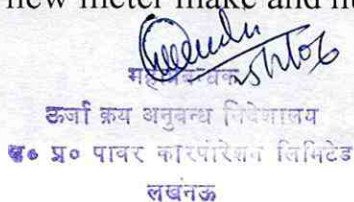 new meter make and
महाप्रबन्धक
ऊर्जा क्रय अनुबन्ध निदेशालय
उ० प्र० पावर कारपोरेशन लिमिटेड
लखनऊ